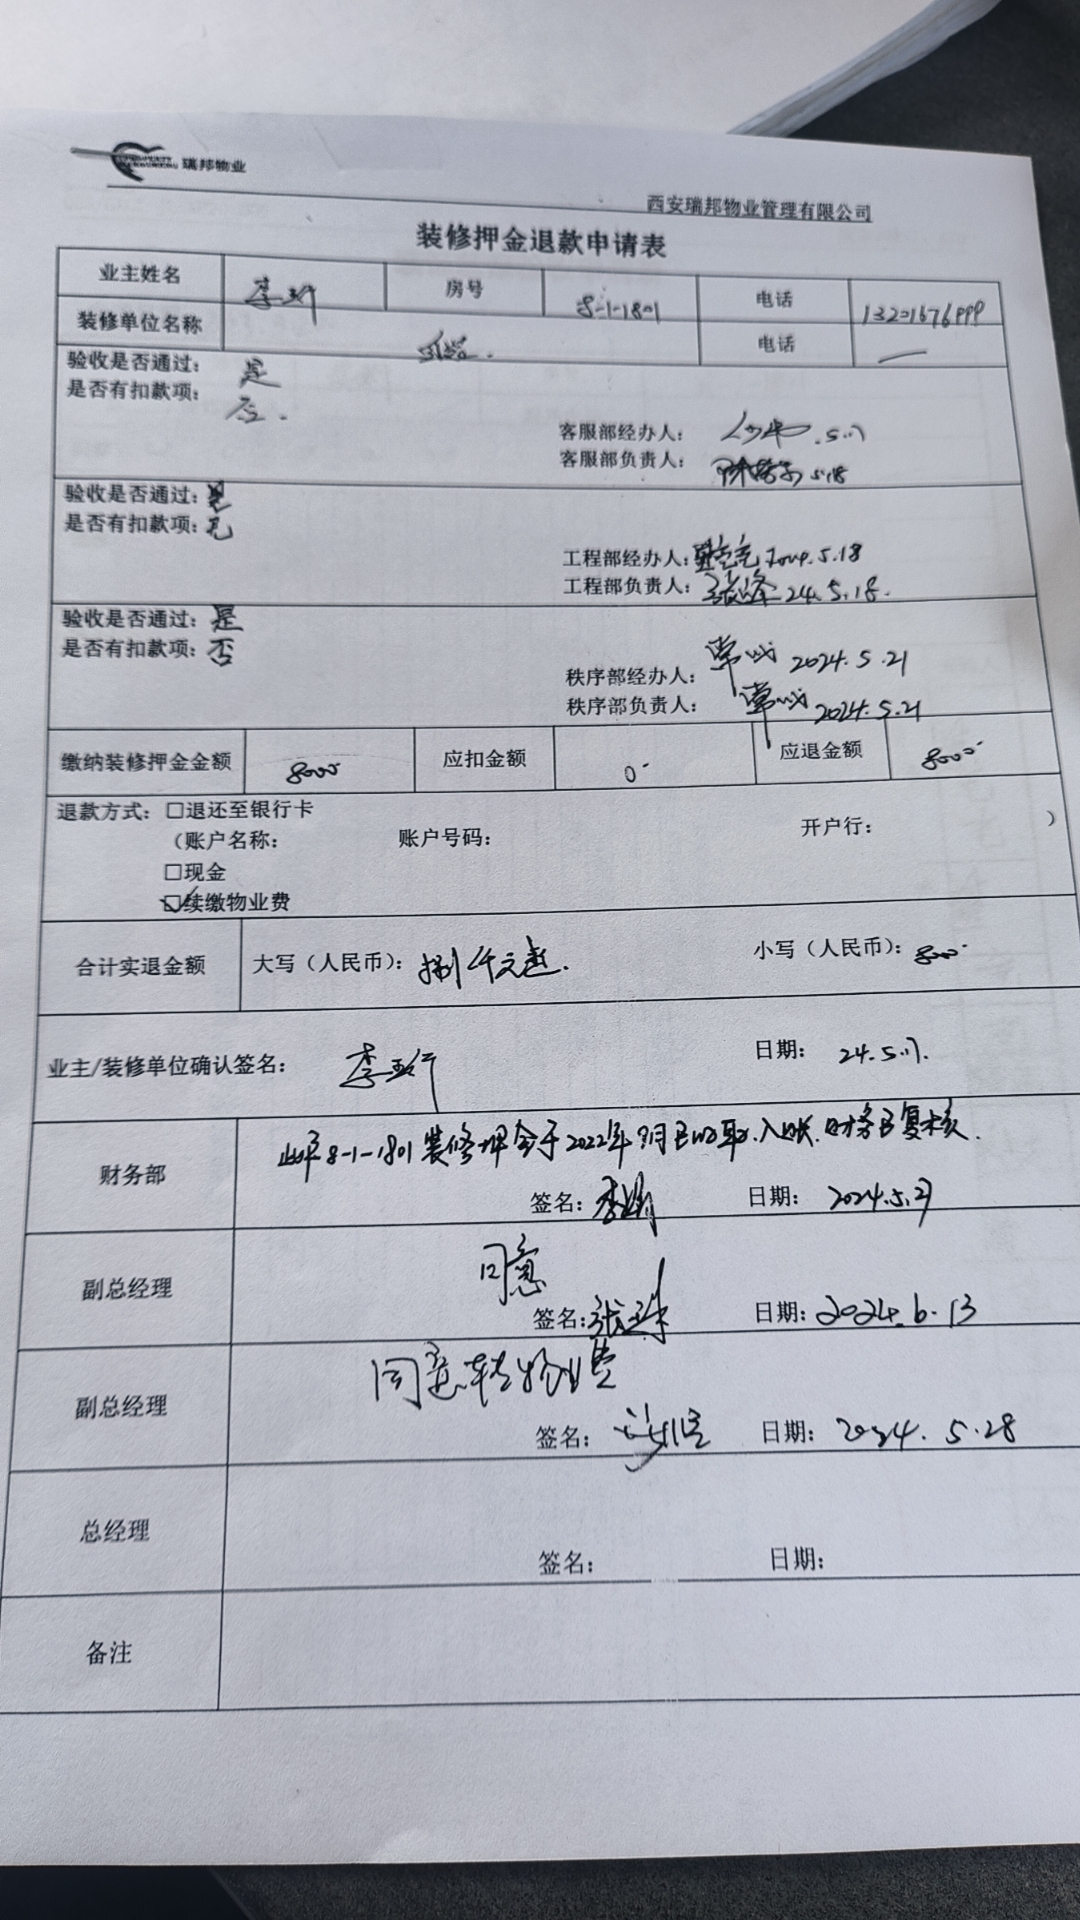 瑞邦物业
西安瑞邦物业管理有限公司
装修押金退款申请表
业主姓名 李 房号 8-1-1801 电话
装修单位名称 电话 —
验收是否通过: 是
是否有扣款项: 否.
客服部经办人: .5.17
客服部负责人: 5.18
验收是否通过: 是
是否有扣款项: 无
工程部经办人: 2024.5.18
工程部负责人: 张峰 24.5.18.
验收是否通过: 是
是否有扣款项: 否
秩序部经办人: 常 2024.5.21
秩序部负责人: 常 2024.5.21
缴纳装修押金金额 8000- 应扣金额 0- 应退金额 8000-
退款方式: □退还至银行卡
(账户名称: 账户号码: 开户行: )
□现金
☑续缴物业费
合计实退金额 大写(人民币): 捌仟元整. 小写(人民币): 8000-
业主/装修单位确认签名: 李 日期: 24.5.17.
财务部 此户8-1-1801装修押金于2022年9月已收取.入账.财务已复核.
签名: 李娟 日期: 2024.5.27
副总经理 同意
签名: 张 日期: 2024.6.13
副总经理 同意转物业费
签名: 日期: 2024.5.28
总经理
签名: 日期:
备注